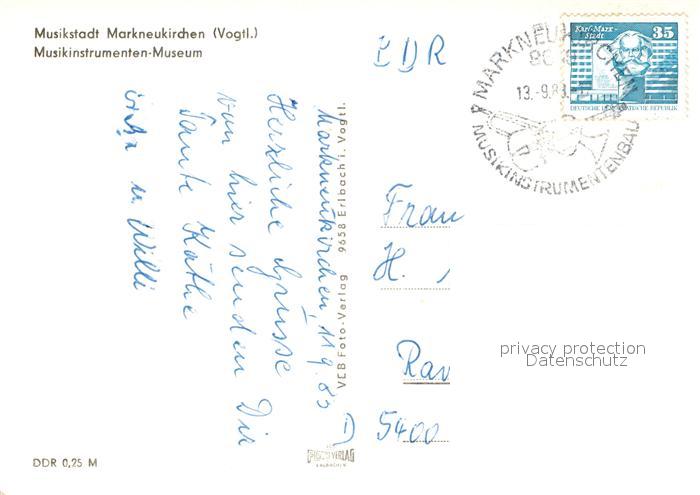 Musikstadt Markneukirchen (Vogtl.)
Musikinstrumenten-Museum
Markneukirchen, 11.9.83
Herzliche Grüsse
von hier senden Dir
Tante Käthe
u. Willi
VEB Foto-Verlag 9658 Erlbach i. Vogtl.
DDR 0,25 M
DDR
MARKNEUKIRCHEN
13.-9.83
MUSIKINSTRUMENTENBAU
Karl-Marx-
Stadt
35
DEUTSCHE DEMOKRATISCHE REPUBLIK
Frau
H.
Rav
5400
privacy protection
Datenschutz
FOTO VERLAG
ERLBACH V.